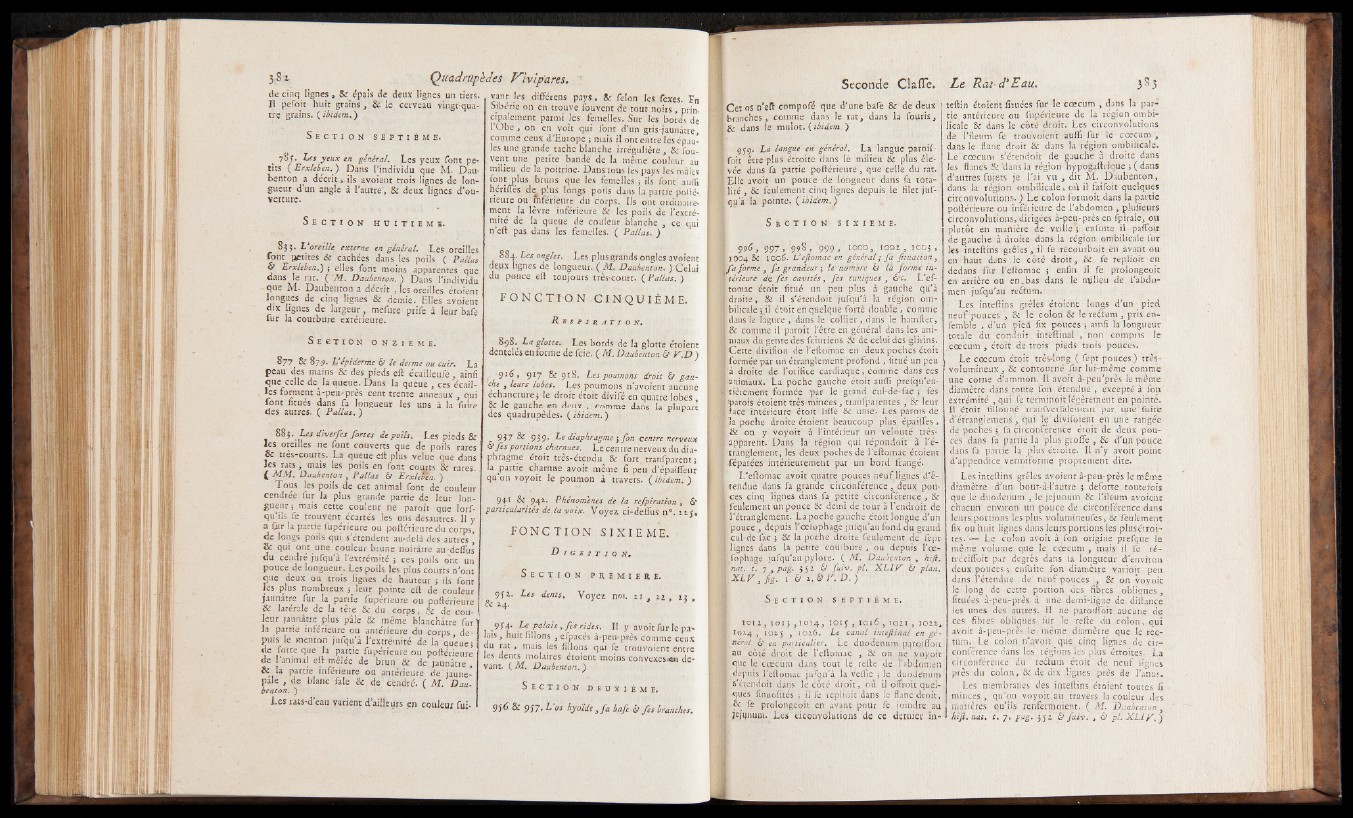 382 Quadrupèdes Vivipares.
de cinq lignes, & épais de deux lignes un tiers.
Il pesoit huit grains, & le cerveau vingt-qua-
tre grains. (ibidem.)
SECTION SEPTIÈME.
785. Les yeux en général. Les yeux sont pe-
tits (Erxleben.) Dans l'individu que M. Dau-
benton a décrit, ils avoient trois lignes de lon-
gueur d'un angle à l'autre, & deux lignes d'ou-
verture.
SECTION HUITIEME.
833. L'oreille externe en général. Les oreilles
sont petites & cachées dans les poils (Pallas
& Erxleben.); elles sont moins apparentes que
dans le rat. (M. Daubenton.) Dans l'individu
que M. Daubenton a décrit, les oreilles étoient
longues de cinq lignes & demie. Elles avoient
dix lignes de largeur, mesure prise à leur base
sur la courbure extérieure.
SECTION ONZIEME.
877 & 879. L'épiderme & le derme ou cuir. La
peau des mains & des pieds est écailleuse, ainsi
que celle de la queue. Dans la queue, ces écail-
les forment à-peu-près cent trente anneaux, qui
sont situés dans sa longueur les uns à la suite
des autres. (Pallas.)
883. Les diverses sortes de poils. Les pieds &
les oreilles ne sont couverts que de poils rares
& très-courts. La queue est plus velue que dans
les rats, mais les poils en sont courts & rares.
(MM. Daubenton, Pallas & Erxleben.)
Tous les poils de cet animal sont de couleur
cendrée sur la plus grande partie de leur lon-
gueur; mais cette couleur ne paroît que lors-
qu'ils se trouvent écartés les uns des autres. Il y
a sur la partie supérieure ou postérieure du corps,
de longs poils qui s'étendent au-delà des autres,
& qui ont une couleur brune noirâtre au-dessus
du cendré jusqu'à l'extrémité; ces poils ont un
pouce de longueur. Les poils les plus courts n'ont
que deux ou trois lignes de hauteur; ils sont
les plus nombreux; leur pointe est de couleur
jaunâtre sur la partie supérieure ou postérieure
& latérale de la tête & du corps, & de cou-
leur jaunâtre plus pâle & même blanchâtre sur
la partie inférieure ou antérieure du corps, de-
puis le menton jusqu'à l'extrémité de la queue;
de sorte que la partie supérieure ou postérieure
de l'animal est mêlée de brun & de jaunâtre,
& la partie inférieure ou antérieure de jaune-
pâle, de blanc sale & de cendré. (M. Dau-
benton.)
Les rats-d'eau varient d'ailleurs en couleur sui-
vant les différens pays, & selon les sexes. En
Sibérie on en trouve souvent de tout noirs, prin-
cipalement parmi les femelles. Sur les bords de
l'Obe, on en voit qui sont d'un gris-jaunâtre,
comme ceux d'Europe; mais il ont entre les épau-
les une grande tache blanche irrégulière, & sou-
vent une petite bande de la même couleur au
milieu de la poitrine. Dans tous les pays les mâles
sont plus bruns que les femelles; ils sont aussi
hérissés de plus longs poils dans la partie posté-
rieure ou inférieure du corps. Ils ont ordinaire-
ment la lèvre inférieure & les poils de l'extré-
mité de la queue de couleur blanche, ce qui
n'est pas dans les femelles. (Pallas.)
884. Les ongles. Les plus grands ongles avoient
deux lignes de longueur. (M. Daubenton.) Celui
du pouce est toujours très-court. (Pallas.)
FONCTION CINQUIÈME.
RESPIRATION.
898. La glotte. Les bords de la glotte étoient
dentelés en forme de scie. (M. Daubenton & V.D)
916, 917 & 918. Les poumons droit & gau-
che, leurs lobes. Les poumons n'avoient aucune
échancrure; le droit étoit divisé en quatre lobes,
& le gauche en deux, comme dans la plupart
des quadrupèdes. (ibidem.)
937 & 939. Le diaphragme; son centre nerveux
& ses portions charnues. Le centre nerveux du dia-
phragme étoit très-étendu & fort transparent;
la partie charnue avoit même si peu d'épaisseur
qu'on voyoit le poumon à travers. (ibidem.)
941 & 942. Phénomènes de la respiration, &
particularités de la voix. Voyez ci-dessus n°. 225.
FONCTION SIXIEME.
DIGESTION.
SECTION PREMIERE.
952. Les dents. Voyez nos. 21, 22, 23,
& 24.
954. Le palais, ses rides. Il y avoit sur le pa-
lais, huit sillons, espacés à-peu-près comme ceux
du rat, mais les sillons qui se trouvoient entre
les dents molaires étoient moins convexes en de-
vant. (M. Daubenton.)
SECTION DEUXIÈME.
956 & 957. L'os hyoïde, sa base & ses branches.
Seconde Classe. Le Rat-d'Eau. 383
Cet os n'est composé que d'une base & de deux
branches, comme dans le rat, dans la souris,
& dans le mulot. (ibidem.)
959. La langue en général. La langue parois-
soit être plus étroite dans le milieu & plus éle-
vée dans sa partie postérieure, que celle du rat.
Elle avoit un pouce de longueur dans sa tota-
lité, & seulement cinq lignes depuis le filet jus-
qu'à la pointe. (ibidem.)
SECTION SIXIEME.
996, 997, 998, 999, 1000, 1002, 1003,
1004 & 1006. L'estomac en général; sa situation,
sa forme, sa grandeur; le nombre & la forme in-
térieure de ses cavités, ses tuniques, &c. L'es-
tomac étoit situé un peu plus à gauche qu'à
droite, & il s'étendoit jusqu'à la région om-
bilicale; il étoit en quelque sorte double, comme
dans le laguce, dans le collier, dans le hamster,
& comme il paroît l'être en général dans les ani-
maux du genre des sciuriens & de celui des glirins.
Cette division de l'estomac en deux poches étoit
formée par un étranglement profond, situé un peu
à droite de l'orifice cardiaque, comme dans ces
animaux. La poche gauche étoit aussi presqu'en-
tièrement formée par le grand cul-de-sac; ses
parois étoient très-minces, transparentes, & leur
face intérieure étoit lisse & unie. Les parois de
la poche droite étoient beaucoup plus épaisses,
& on y voyoit à l'intérieur un velouté très-
apparent. Dans la région qui répondoit à l'é-
tranglement, les deux poches de l'estomac étoient
séparées intérieurement par un bord frangé.
L'estomac avoit quatre pouces neuf lignes d'é-
tendue dans sa grande circonférence, deux pou-
ces cinq lignes dans sa petite circonférence, &
seulement un pouce & demi de tour à l'endroit de
l'étranglement. La poche gauche étoit longue d'un
pouce, depuis l'œsophage jusqu'au fond du grand
cul-de-sac; & la poche droite seulement de sept
lignes dans la petite courbure, ou depuis l'œ-
sophage jusqu'au pylore. (M. Daubenton, hist.
nat. t. 7, pag. 352 & suiv. pl. XLIV & plan.
XLV, fig. 1 & 2, & V. D.)
SECTION SEPTIÈME.
1012, 1013, 1014, 1015, 1016, 1021, 1022,
1024, 1025, 1026. Le canal intestinal en gé-
néral & en particulier. Le duodenum paroissoit
au côté droit de l'estomac, & on ne voyoit
que le cœcum dans tout le reste de l'abdomen
depuis l'estomac jusqu'à la vessie; le duodenum
s'étendoit dans le côté droit, où il offroit quel-
ques sinuosités; il se replioit dans le flanc droit,
& se prolongeoit en avant pour se joindre au
jejunum. Les circonvolutions de ce dernier in-
testin étoient situées sur le cœcum, dans la par-
tie antérieure ou supérieure de la région ombi-
licale & dans le côté droit. Les circonvolutions
de l'ileum se trouvoient aussi sur le cœcum,
dans le flanc droit & dans la région ombilicale.
Le cœcum s'étendoit de gauche à droite dans
les flancs & dans la région hypogastrique; (dans
d'autres sujets je l'ai vu, dit M. Daubenton,
dans la région ombilicale, où il faisoit quelques
circonvolutions.) Le colon formoit dans la partie
postérieure ou inférieure de l'abdomen, plusieurs
circonvolutions, dirigées à-peu-près en spirale, ou
plutôt en manière de vrille; ensuite il passoit
de gauche à droite dans la région ombilicale sur
les intestins grêles, il se recourboit en avant ou
en haut dans le côté droit, & se replioit en
dedans sur l'estomac; enfin il se prolongeoit
en arrière ou en bas dans le milieu de l'abdo-
men jusqu'au rectum.
Les intestins grêles étoient longs d'un pied
neuf pouces, & le colon & le rectum, pris en-
semble, d'un pied six pouces; ainsi la longueur
totale du conduit intestinal, non compris le
cœcum, étoit de trois pieds trois pouces.
Le cœcum étoit très-long (sept pouces) très-
volumineux, & contourné sur lui-même comme
une corne d'ammon. Il avoit à-peu-près le même
diamètre dans toute son étendue, excepté à son
extrémité, qui se terminoit légèrement en pointe.
Il étoit sillonné transversalement par une suite
d'étranglemens, qui le divisoient en une rangée
de poches; sa circonférence étoit de deux pou-
ces dans sa partie la plus grosse, & d'un pouce
dans sa partie la plus étroite. Il n'y avoit point
d'appendice vermiforme proprement dite.
Les intestins grêles avoient à-peu-près le même
diamètre d'un bout-à-l'autre; desorte toutefois
que le duodenum, le jejunum & l'ileum avoient
chacun environ un pouce de circonférence dans
leurs portions les plus volumineuses, & seulement
six ou huit lignes dans leurs portions les plus étroi-
tes. — Le colon avoit à son origine presque le
même volume que le cœcum, mais il se ré-
trécissoit par degrés dans la longueur d'environ
deux pouces; ensuite son diamètre varioit peu
dans l'étendue de neuf pouces, & on voyoit
le long de cette portion des fibres obliques,
situées à-peu-près à une demi-ligne de distance
les unes des autres. Il ne paroissoit aucune de
ces fibres obliques sur le reste du colon, qui
avoit à-peu-près le même diamètre que le rec-
tum. Le colon n'avoit que cinq lignes de cir-
conférence dans les régions les plus étroites. La
circonférence du rectum étoit de neuf lignes
près du colon, & de dix lignes près de l'anus.
Les membranes des intestins étoient toutes si
minces, qu'on voyoit au travers la couleur des
matières qu'ils renfermoient. (M. Daubenton,
hist. nat. t. 7, pag. 352 & suiv., & pl. XLIV.)